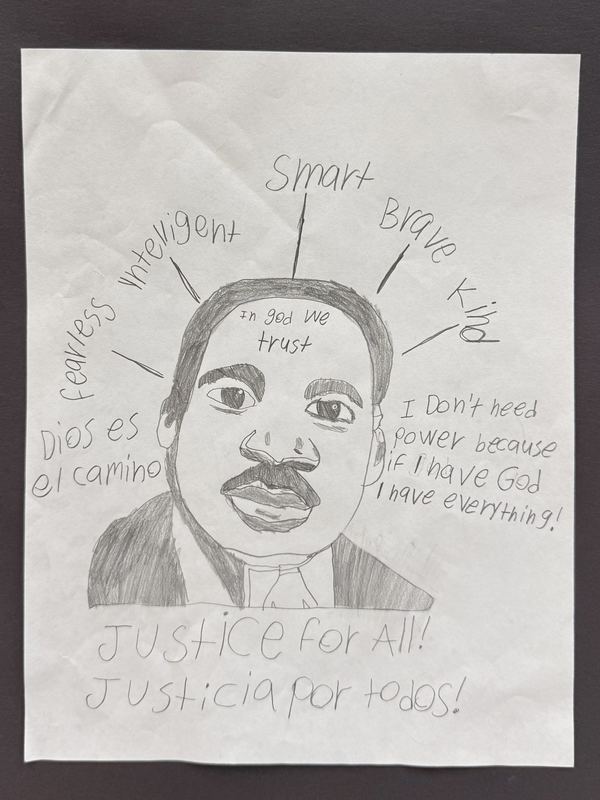 Smart
Brave
Kind
Intelligent
Fearless
In god We
trust
Dios es
el camino
I Don't need
power because
if I have God
I have everything!
Justice for All!
Justicia por todos!